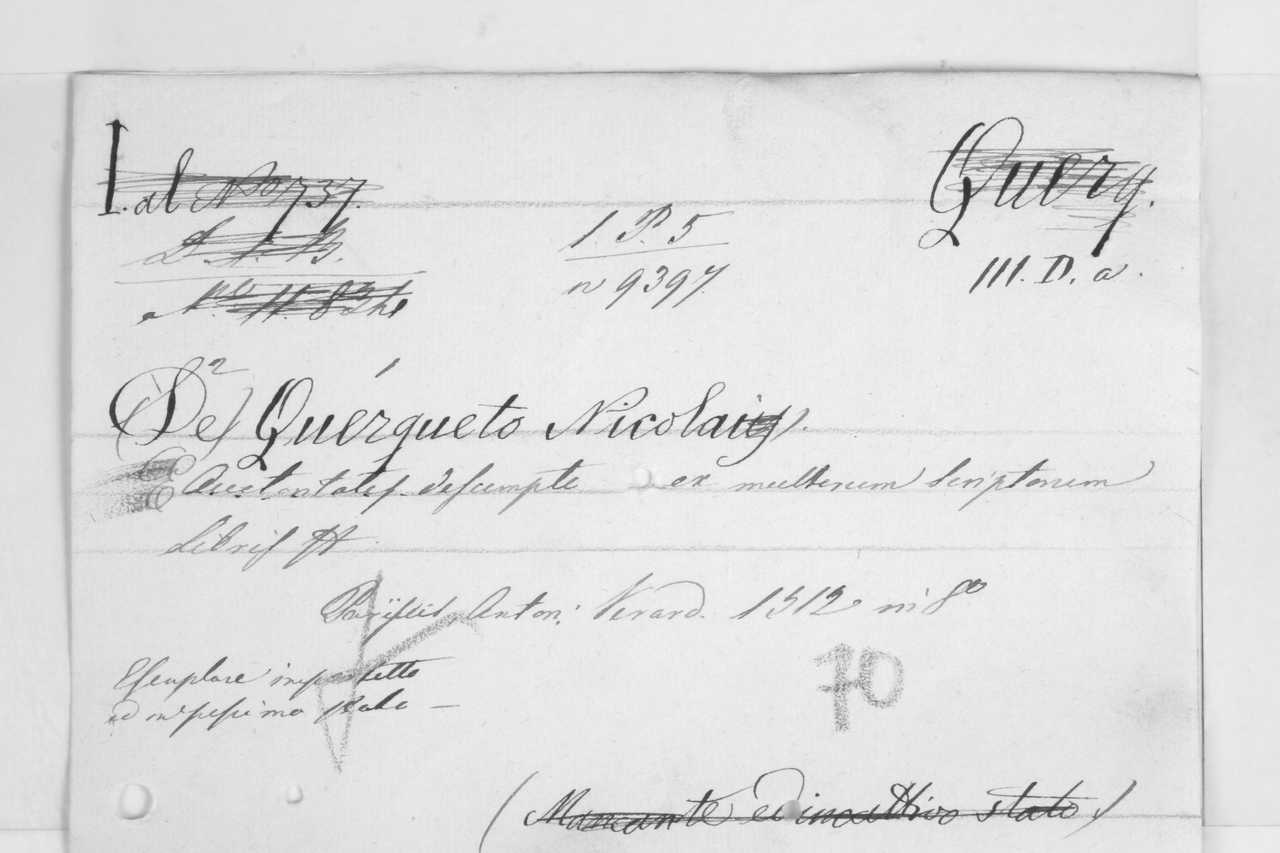 I. al No 737.
Querq.
1. P. 5
III. D. a.
n 9397
De) Querqueto Nicolai
Auctoritates descumpte ex multorum Scriptorum
Libris
Parisiis, Anton: Verard. 1512 in 8º
Esemplare imperfetto
ed in pessimo stato —
70
(Mancante ed in cattivo stato)